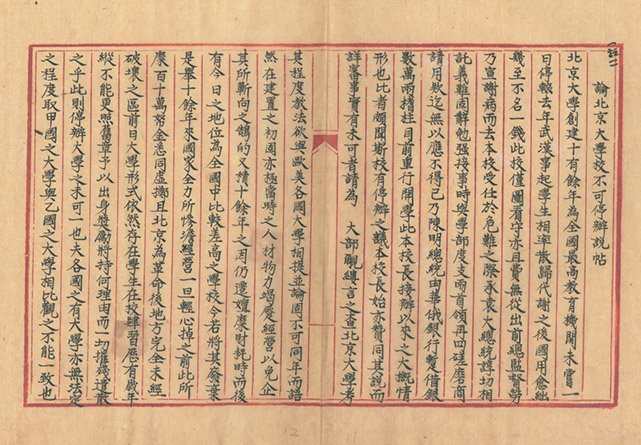 論北京大學校不可停辦說帖
北京大學創建十有餘年為全國最高教育機關未嘗一
日停輟去年武漢事起學生相率散歸代謝之後國用愈絀
幾至不名一錢此校僅圖看守亦且費無從出前總監督勞
乃宣謝病而去本校受任於危難之際承袁大總統諄切相
託義難固辭勉強接事時與學部度支兩首領再四磋磨商
請用款迄無以應不得已乃陳明總統由華俄銀行暫借銀
數萬兩搘柱目前重行開學此本校長接辦以來之大概情
形也比者頗聞斯校有停辦之議本校長始亦贊同其說而
詳審事實有未可者請為 大部覼縷言之查北京大學考
其程度教法欲與歐美各國大學相提並論固不可同年而語
然在建置之初固亦極當時之人材物力竭慶經營以免企
其所蘄向之鵠的又積十餘年之因仍遷嬗糜財耗時而後
有今日之地位為全國中比較差高之學校今若將其廢棄
是舉十餘年來國家全力所慘澹經營一旦輕心掉之前此所
糜百十萬帑金悉同虛擲且北京為革命後地方完全未經
破壞之區前日大學形式依然存在學生在校肄習歷有歲年
縱不能更照舊章予以出身獎勵將持何理由而一切摧殘遣散
之乎此則停辦大學之未可一也夫各國之有大學亦無法定
之程度取甲國之大學與乙國之大學相比觀之不能一致也